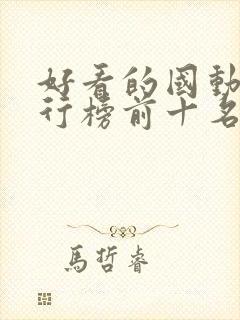 好看的國動
行榜前十名
馬哲睿